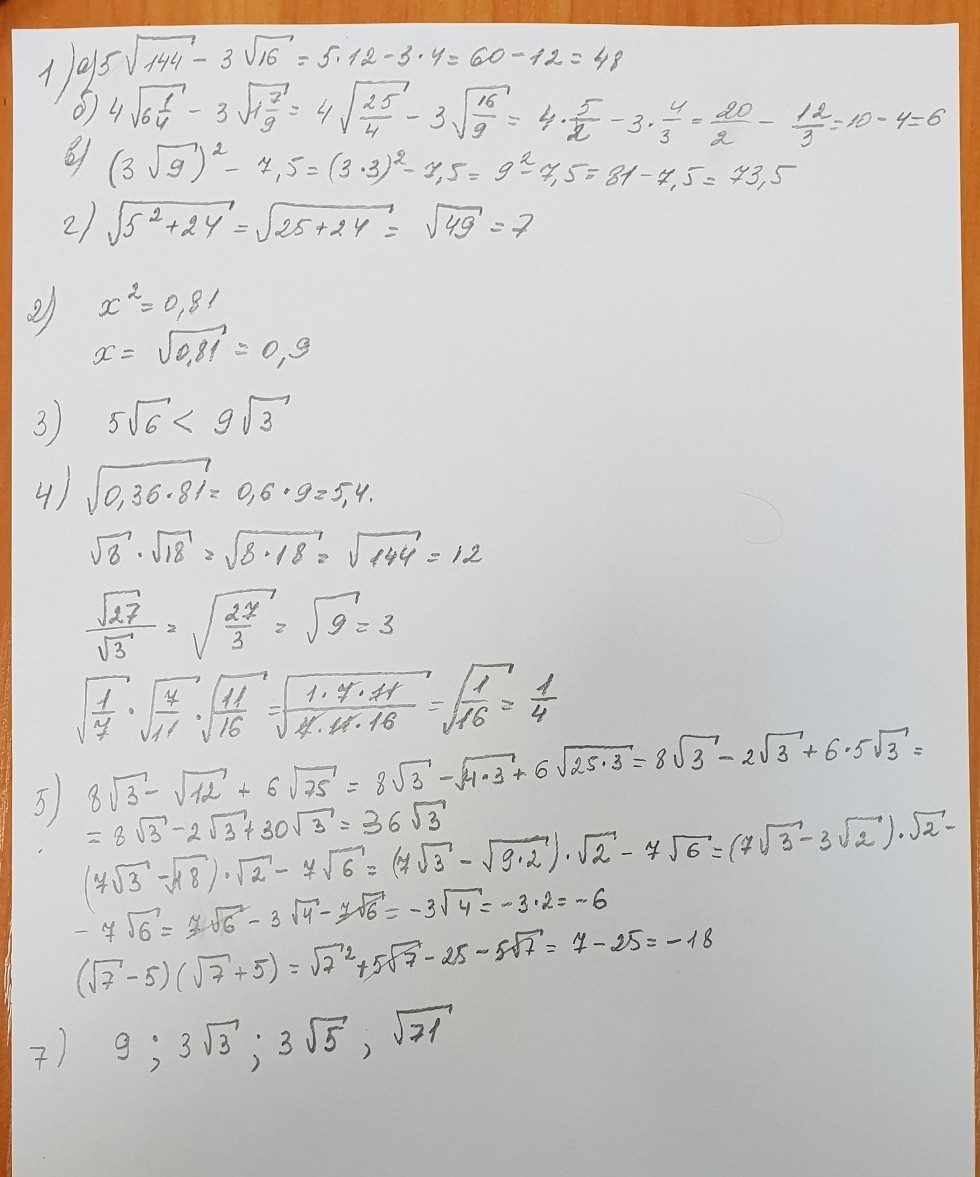 1) а) 5√144 - 3√16 = 5·12 - 3·4 = 60 - 12 = 48
б) 4√6 1/4 - 3√1 7/9 = 4√25/4 - 3√16/9 = 4·5/2 - 3·4/3 = 20/2 - 12/3 = 10 - 4 = 6
в) (3√9)² - 7,5 = (3·3)² - 7,5 = 9² - 7,5 = 81 - 7,5 = 73,5
г) √5²+24 = √25+24 = √49 = 7
2) x² = 0,81
x = √0,81 = 0,9
3) 5√6 < 9√3
4) √0,36·81 = 0,6·9 = 5,4.
√8 · √18 = √8·18 = √144 = 12
√27/√3 = √27/3 = √9 = 3
√1/7 · √7/11 · √11/16 = √1·7·11/7·11·16 = √1/16 = 1/4
5) 8√3 - √12 + 6√75 = 8√3 - √4·3 + 6√25·3 = 8√3 - 2√3 + 6·5√3 =
= 8√3 - 2√3 + 30√3 = 36√3
(7√3 - √18)·√2 - 7√6 = (7√3 - √9·2)·√2 - 7√6 = (7√3 - 3√2)·√2 -
- 7√6 = 7√6 - 3√4 - 7√6 = -3√4 = -3·2 = -6
(√7 - 5)(√7 + 5) = √7² + 5√7 - 25 - 5√7 = 7 - 25 = -18
7) 9 ; 3√3 ; 3√5 ; √71